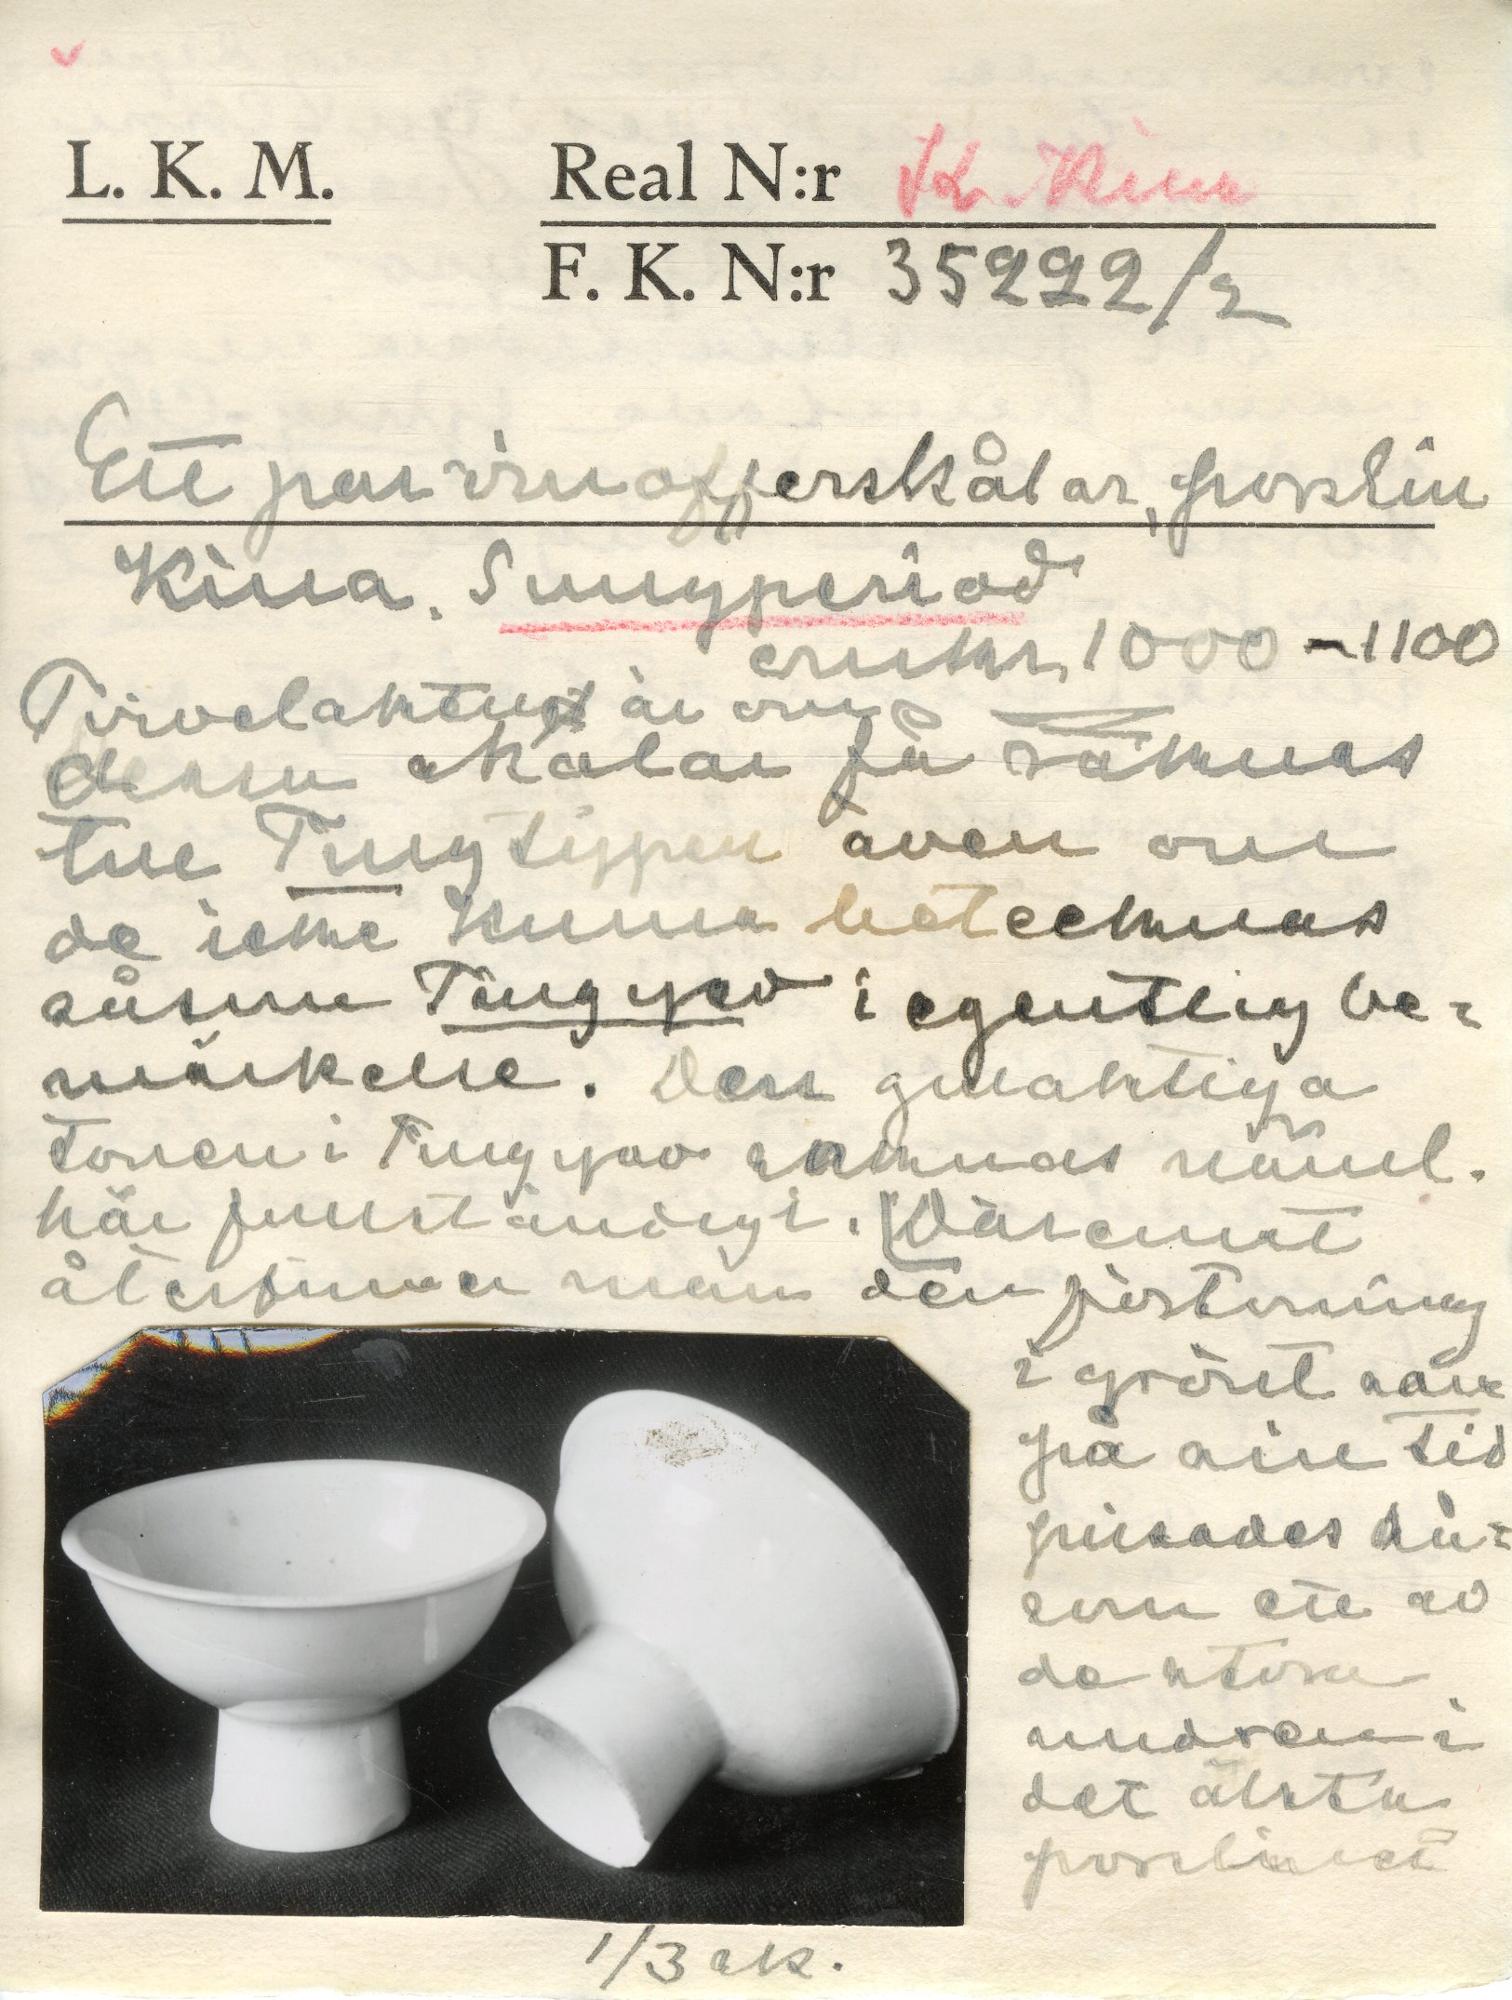 L. K. M.
Real N:r Kina
F. K. N:r 35222/2
Ett par vinofferskålar, porslin
Kina. Sungperiod
omkr. 1000-1100
Tvivelaktigt är om
dessa skålar få räknas
till Tingtypen även om
de icke kunna betecknas
såsom Tingyao i egentlig be-
märkelse. Den gulaktiga
tonen i Tingyao saknas näml.
här fullständigt. Däremot
återfinner man den förtoning
i grönt som
på sin tid
prisades så-
som ett av
de stora
undren i
det älsta
porslinet
1/3 sk.